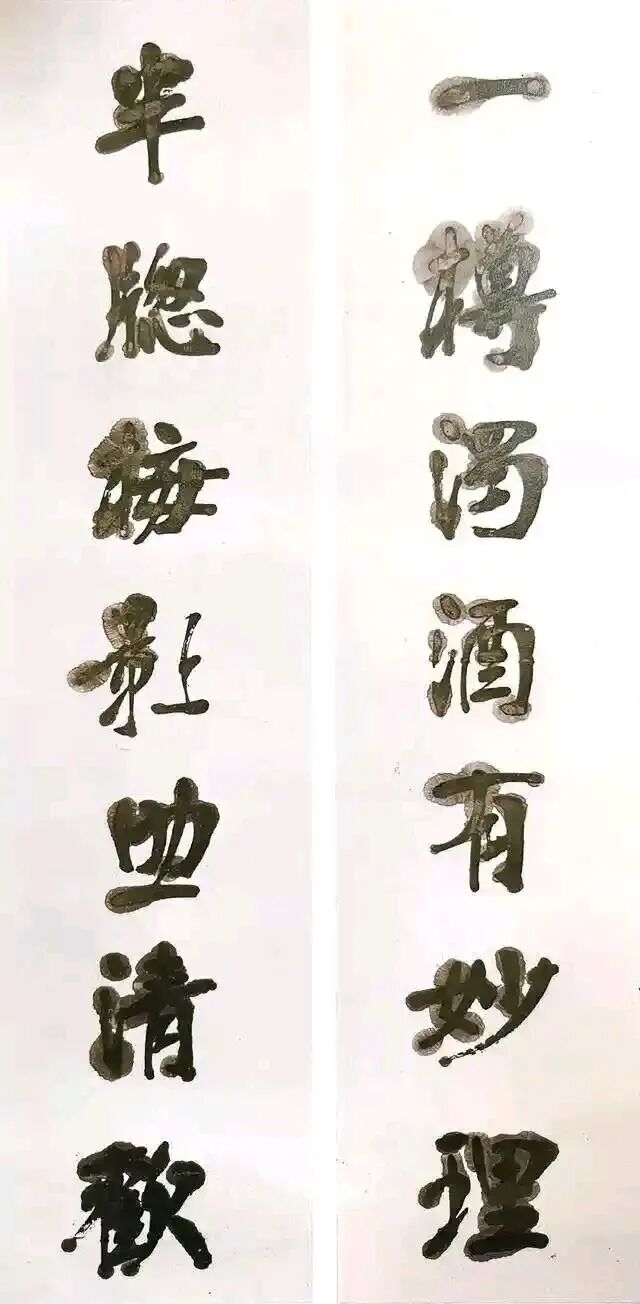 一樽濁酒有妙理
半牕梅影助清歡